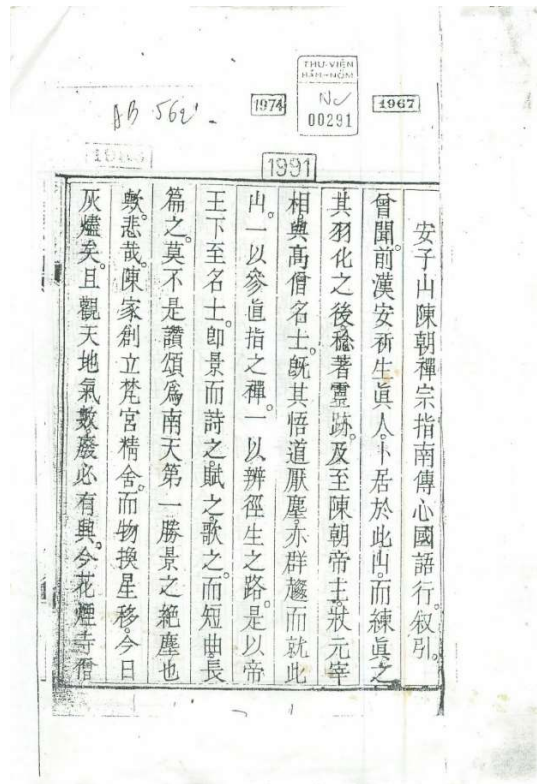 AB 562
1974
THƯ-VIỆN
HÁN-NÔM
Nv
00291
1967
1991
安子山陳朝禪宗指南傳心國語行。叙引。
曾聞。前漢安祈生眞人。卜居於此山。而練眞之
其羽化之後。稔著靈跡。及至陳朝帝王。狀元宰
相與高僧名士。旣其悟道厭塵。亦群趨而就此
山。一以參直指之禪。一以辨徑生之路。是以帝
王下至名士。卽景而詩之賦之歌之。而短曲長
篇之。莫不是讚頌爲南天第一勝景之絶塵也
歟。悲哉。陳家創立梵宮精舍。而物換星移。今日
灰燼矣。且觀天地氣數。廢必有興。今花煙寺僧